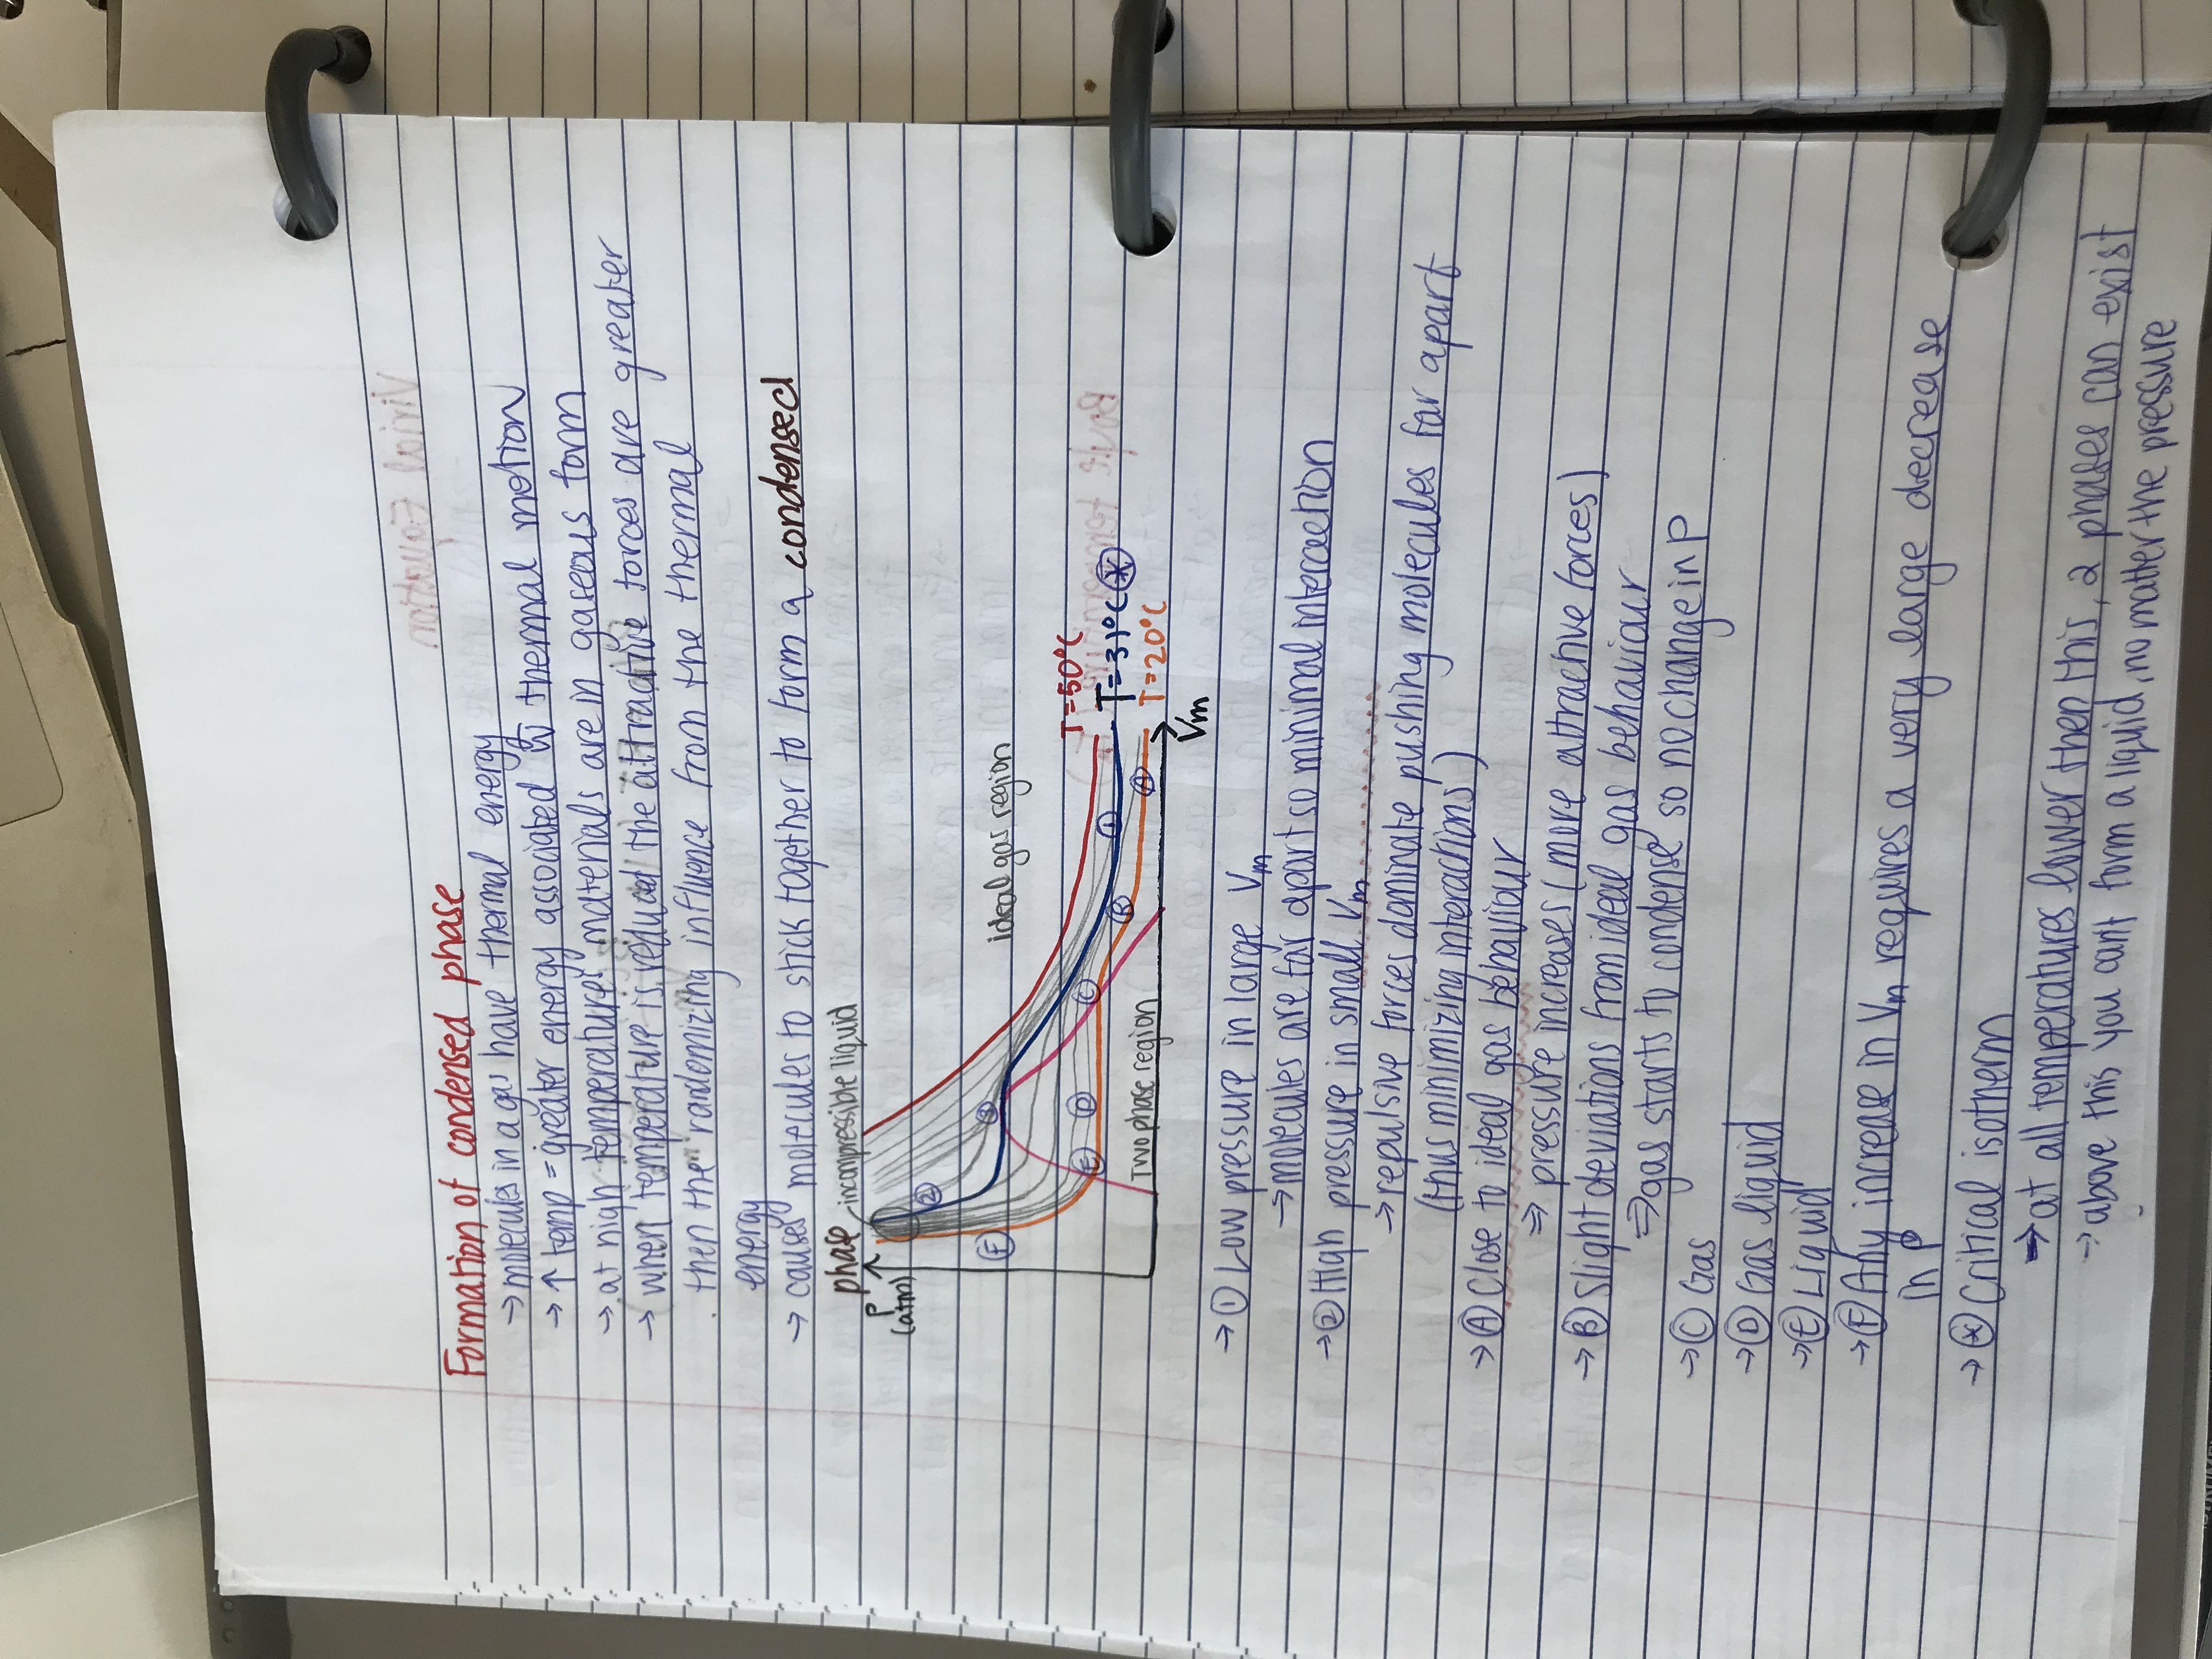 Formation of condensed phase
→ molecules in a gas have thermal energy
→ ↑ temp = greater energy associated w/ thermal motion
→ at high temperatures materials are in gaseous form
→ when temperature is reduced the attractive forces are greater
then the randomizing influence from the thermal
energy
→ causes molecules to stick together to form a condensed
phase
P
(atm)
incompressible liquid
ideal gas region
T=50°C
T=31°C *
T=20°C
Vm
Two phase region
1
2
3
A
B
C
D
E
F
→ ① Low pressure in large Vm
→ molecules are far apart so minimal interaction
→ ② High pressure in small Vm
→ repulsive forces dominate pushing molecules far apart
(thus minimizing interactions)
→ Ⓐ Close to ideal gas behaviour
⇒ pressure increases (more attractive forces)
→ Ⓑ Slight deviations from ideal gas behaviour
⇒ gas starts to condense so no change in P
→ Ⓒ Gas
→ Ⓓ Gas liquid
→ Ⓔ Liquid
→ Ⓕ Any increase in Vm requires a very large decrease
in P
→ ⊛ Critical isotherm
→ at all temperatures lower then this, 2 phases can exist
→ above this you cant form a liquid, no matter the pressure
Virial Equation